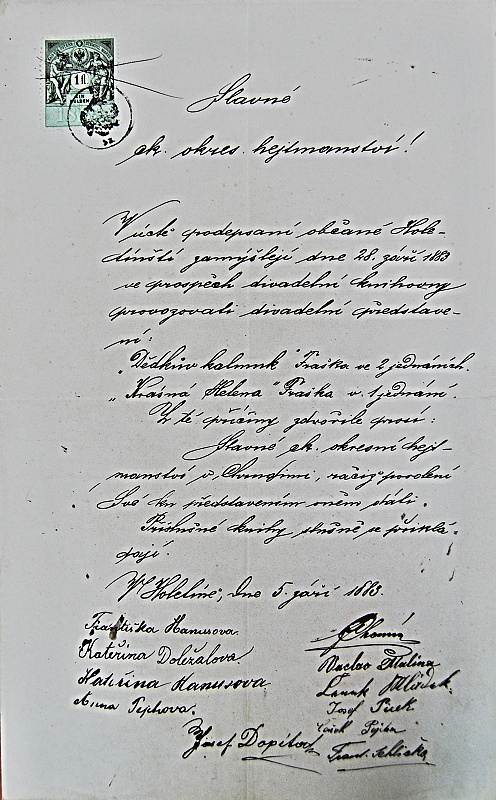 1 fl
Slavné
ck. okres. hejtmanství!
V úctě podepsaní občané Hole-
tínští zamýšlejí dne 28. září 1883
ve prospěch divadelní knihovny
provozovati divadelní představe-
ní:
„Dědkův kalmuk" Fraška ve 2 jednáních.
„Krásná Helena" Fraška v 1 jednání.
Z té příčiny zdvořile prosí:
Slavné ck. okresní hejt-
manství v Chrudimi, račiž povolení
Své ku představením oněm dáti.
Příslušné knihy slušně se přiklá-
dají.
V Holetíně, dne 5. září 1883.
Františka Hanusova.
Kateřina Doležalova.
Kateřina Hanusova
Anna Pejchova.
Josef Dopita
Václav Malina
Josef Picek
Frant.